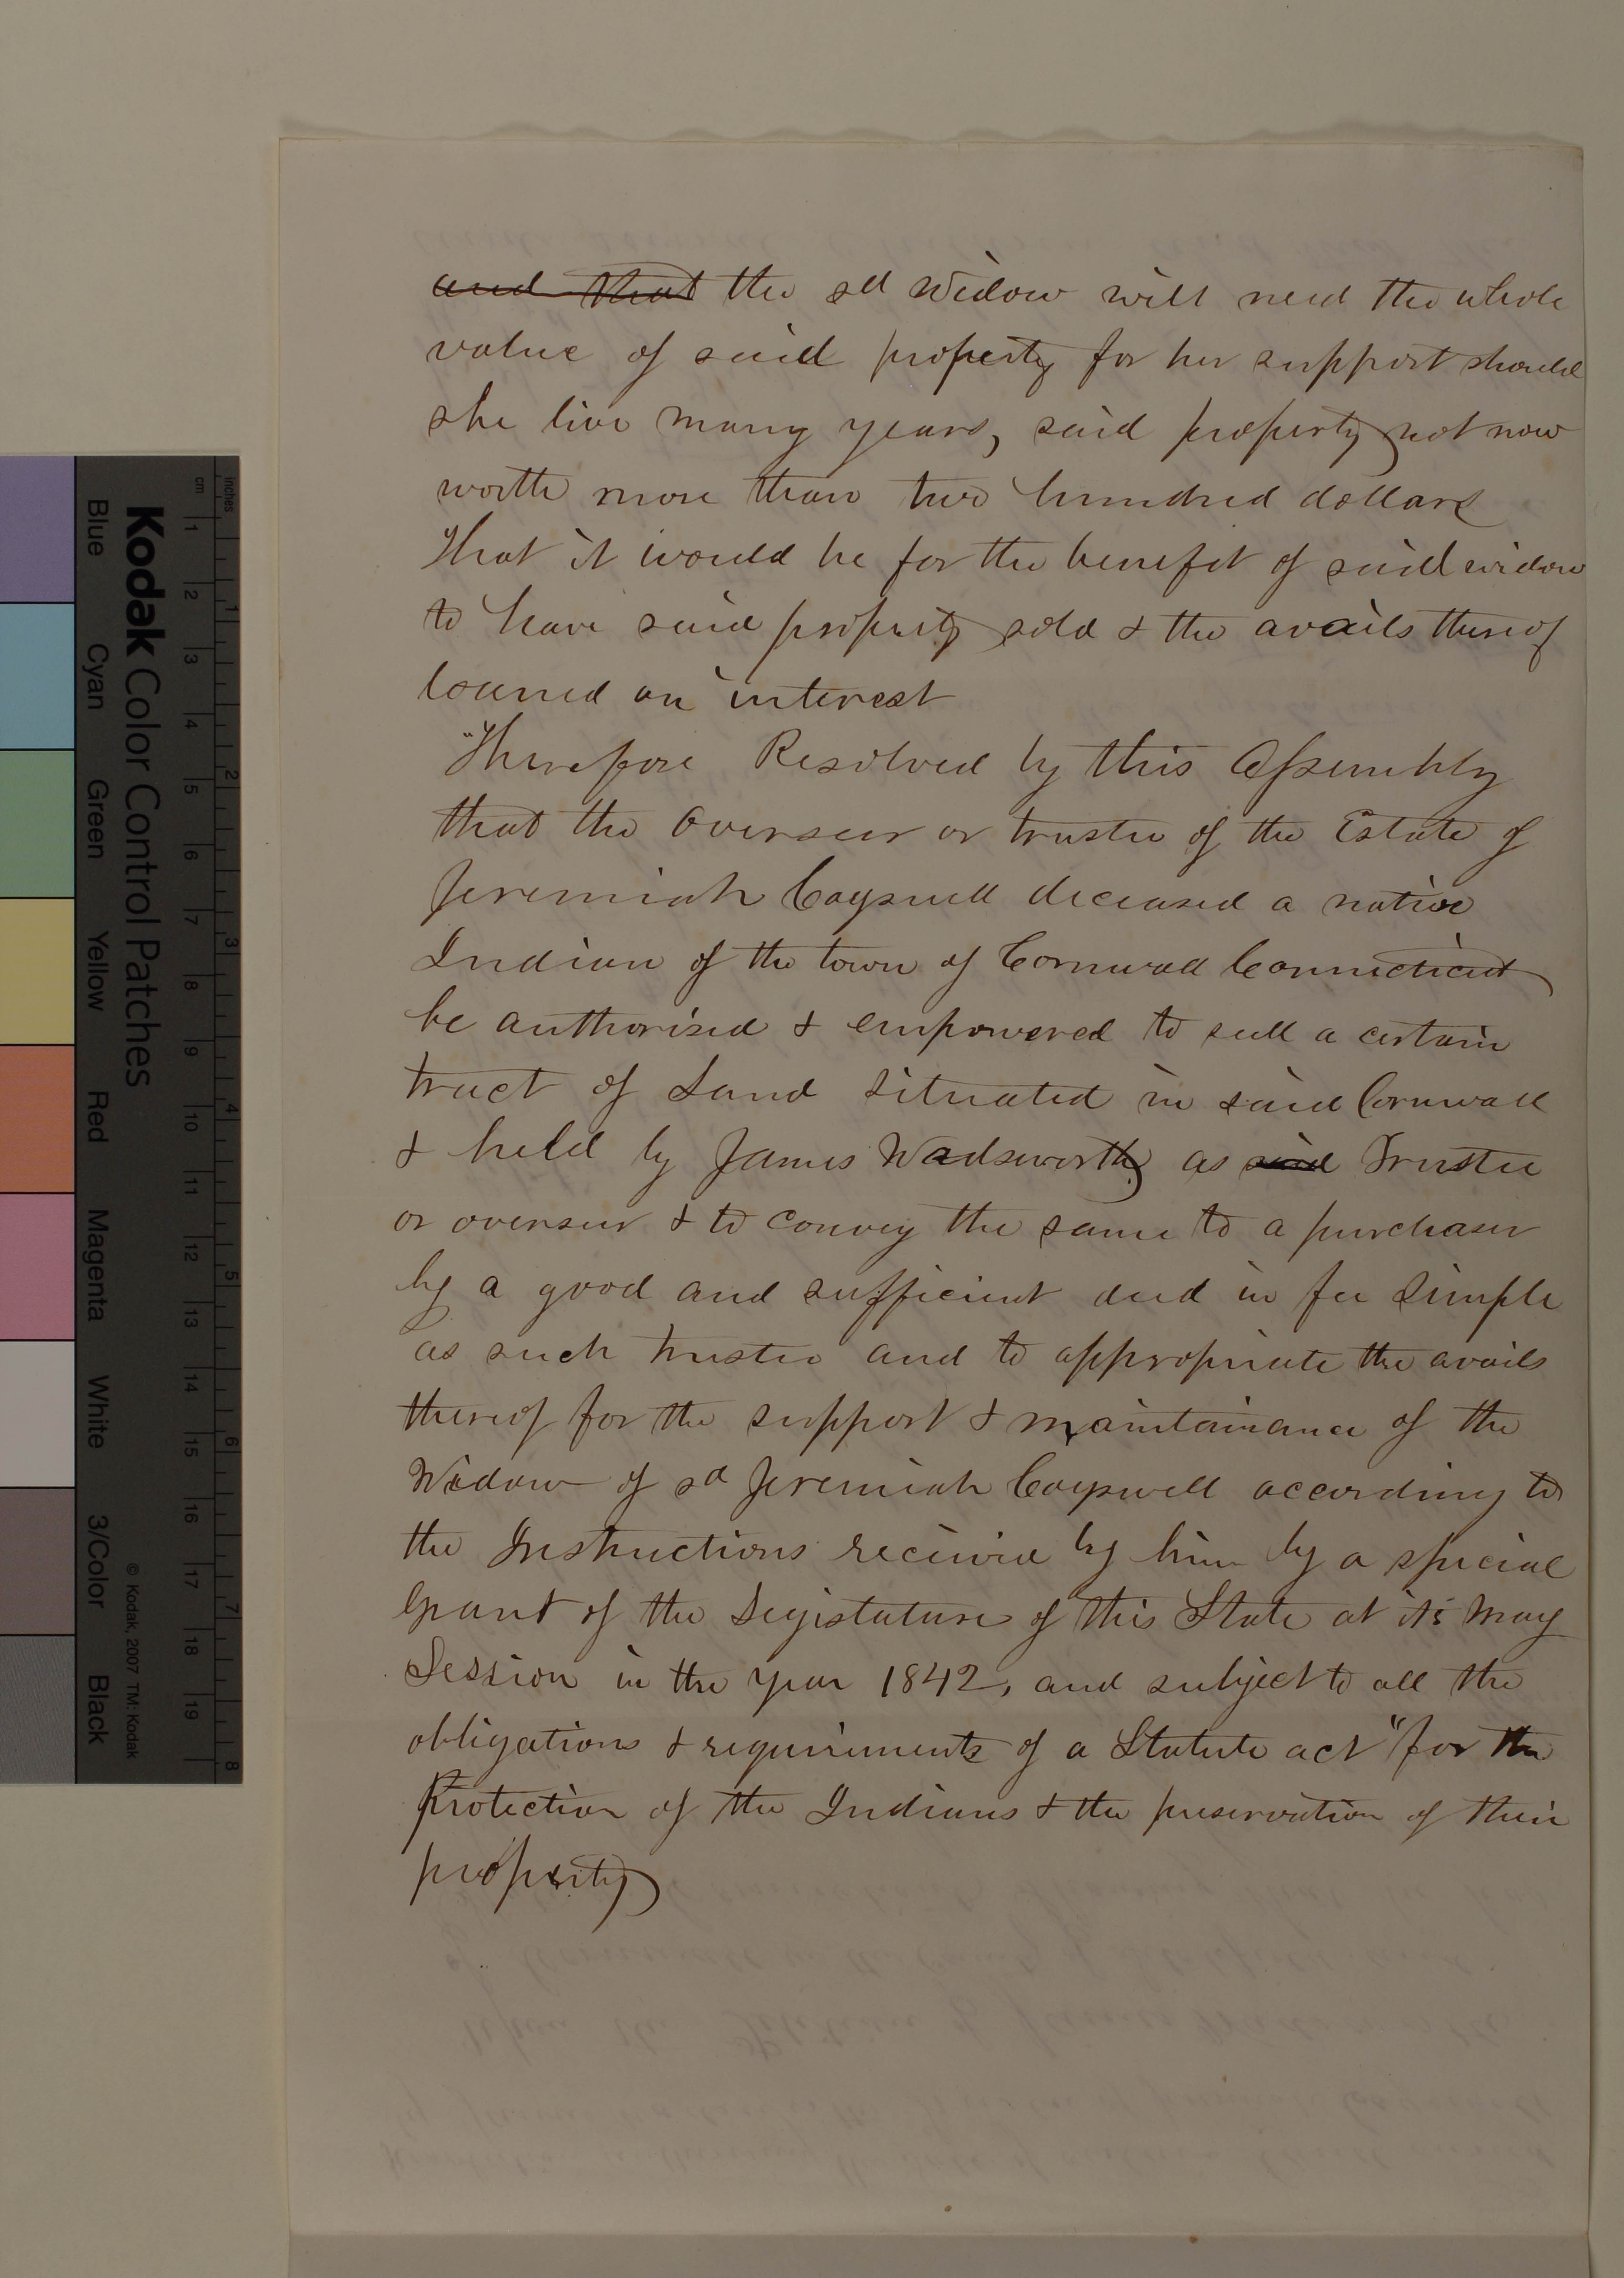 and that the sd Widow will need the whole
value of said property for her support should
she live many years, said property not now
worth more than two hundred dollars
That it would be for the benefit of said widow
to have said property sold & the avails thereof
loaned on interest
Therefore Resolved by this Assembly
that the Overseer or trustee of the Estate of
Jeremiah Cogswell deceased a native
Indian of the town of Cornwall Connecticut
be authorised & empowered to sell a certain
tract of Land situated in said Cornwall
& held by James Wadsworth as said Trustee
or overseer & to convey the same to a purchaser
by a good and sufficient deed in fee simple
as such trustee and to appropriate the avails
thereof for the support & maintainance of the
Widow of sd Jeremiah Cogswell according to
the Instructions received by him by a special
Grant of the Legislature of this State at its May
Session in the year 1842, and subject to all the
obligations & requirements of a Statute act "for the
Protection of the Indians & the preservation of their
property
Kodak Color Control Patches
© Kodak, 2007 TM: Kodak
Blue Cyan Green Yellow Red Magenta White 3/Color Black
cm 1 2 3 4 5 6 7 8 9 10 11 12 13 14 15 16 17 18 19
inches 1 2 3 4 5 6 7 8